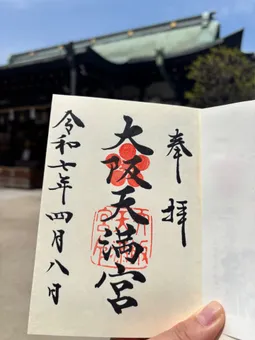 奉拝
大阪天満宮
令和七年四月八日